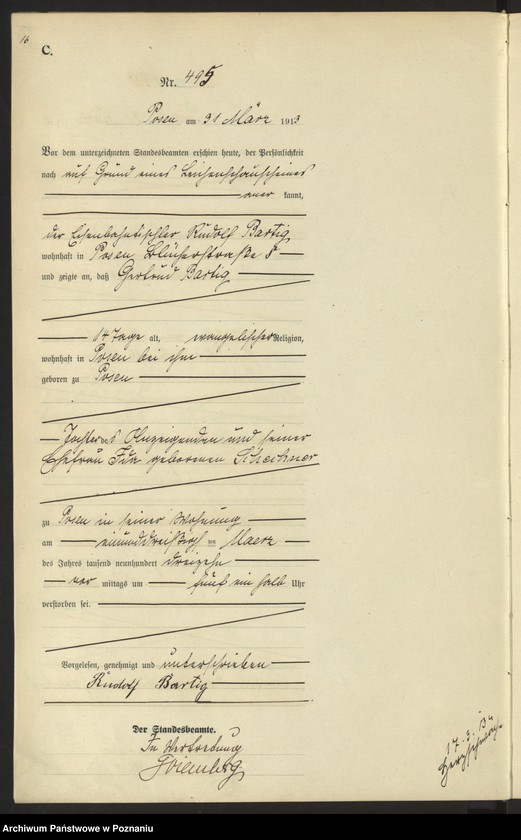 16
C.
Nr. 495
Posen am 31 März 1913
Vor dem unterzeichneten Standesbeamten erschien heute, der Persönlichkeit
nach auf Grund eines Leichenschauscheines
aner kannt,
der Eisenbahntischler Rudolf Bartig
wohnhaft in Posen Blücherstraße 8
und zeigte an, daß Gertrud Bartig
14 Tage alt, evangelischer Religion,
wohnhaft in Posen bei ihm
geboren zu Posen
Tochter des Anzeigenden und seiner
Ehefrau geborenen
zu Posen in seiner Wohnung
am einunddreißigsten Maerz
des Jahres tausend neunhundert dreizehn
vor mittags um fünf ein halb Uhr
verstorben sei.
Vorgelesen, genehmigt und unterschrieben
Rudolf Bartig
Der Standesbeamte.
In Vertretung
17. 3. 13
Herzschwäche
Archiwum Państwowe w Poznaniu